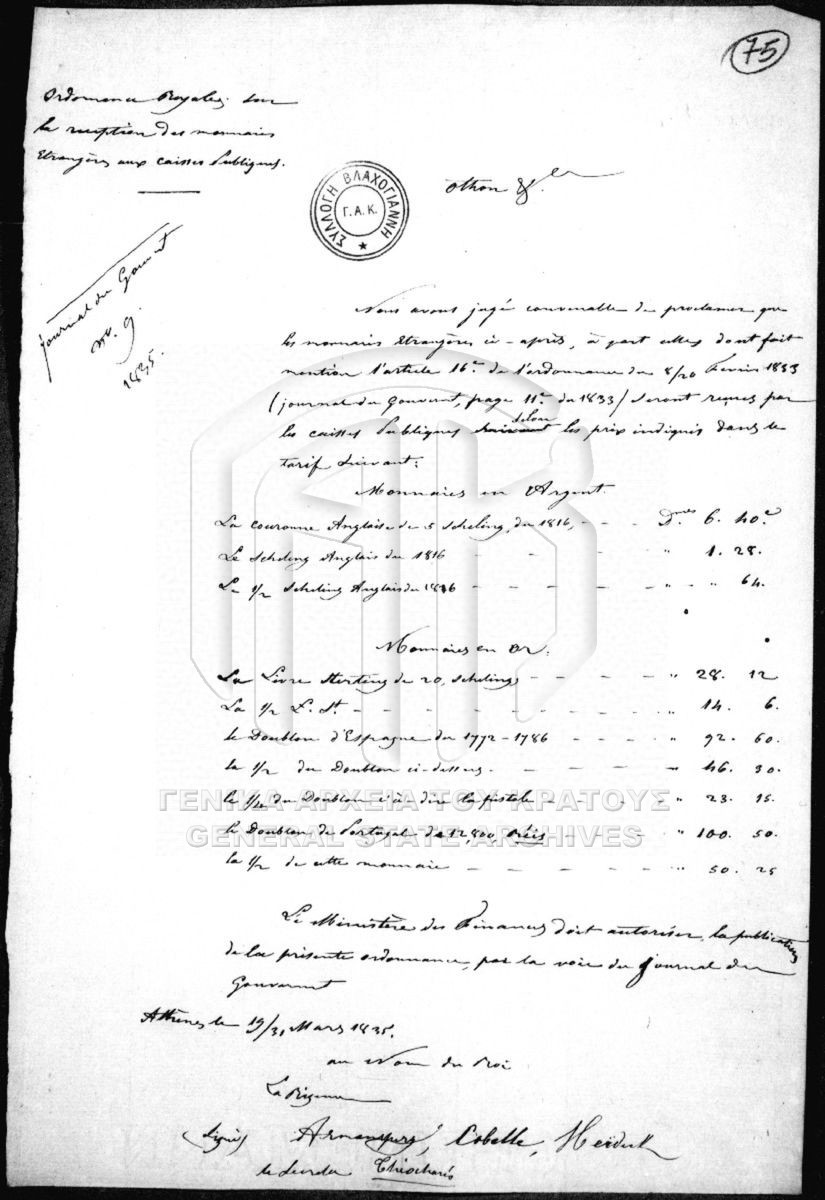 75
Ordonnance Royale, sur
la reception des monnaies
Etrangères aux caisses Publiques.
ΣΥΛΛΟΓΗ ΒΛΑΧΟΓΙΑΝΝΗ
Γ.Α.Κ.
Othon &
journal du Gouvnt
No. 9.
1835.
Nous avons jugé convenable de proclamer que
les monnaies Etrangères ci-après, à part celles dont fait
mention l'article 16e de l'ordonnance du 8/20 Fevrier 1833
(journal du Gouvernt, page 11e du 1833) seront reçues par
les caisses Publiques suivant selon les prix indiqués dans le
tarif suivant:
Monnaies en Argent.
La couronne Anglaise de 5 scheling, du 1816, - - - Dmes 6. 40c
Le scheling Anglais du 1816 - - - - - " 1. 28.
Le 1/2 scheling Anglais du 1816 - - - - - " " 64.
Monnaies en Or.
La Livre sterling de 20, schelings - - - - - " 28. 12
La 1/2 L. St. - - - - - - - - - " 14. 6.
le Doublon d'Espagne du 1772-1786 - - - - " 92. 60.
le 1/2 du Doublon ci-dessus. - - - - - " 46. 30.
le 1/4 du Doublon c'à dire la pistole - - - - " 23. 15.
le Doublon de Portugal de 12,800, Réis - - - - " 100. 50.
la 1/2 de cette monnaie - - - - - - " 50. 25
ΓΕΝΙΚΑ ΑΡΧΕΙΑ ΤΟΥ ΚΡΑΤΟΥΣ
GENERAL STATE ARCHIVES
Le Ministère des Finances doit autoriser, la publication
de la présente ordonnance, par la voie du journal du
Gouvernnt
Athènes le 19/31 Mars 1835.
au Nom du Roi
La Régence
signés Armansperg, Cobelle, Heideck
le Théocharis